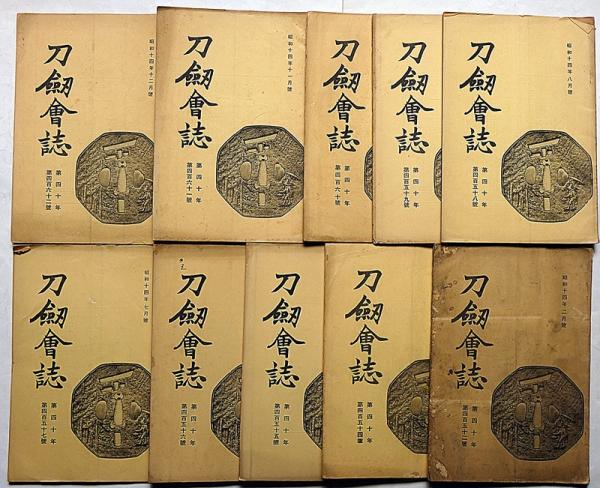 昭和十四年十二月號
刀劔會誌
第四十年
第四百六十二號
昭和十四年十一月號
刀劔會誌
第四十年
第四百六十一號
刀劔會誌
第四十年
第四百六十號
刀劔會誌
第四十年
第四百五十九號
昭和十四年八月號
刀劔會誌
第四十年
第四百五十八號
昭和十四年七月號
刀劔會誌
第四十年
第四百五十七號
刀劔會誌
第四十年
第四百五十六號
刀劔會誌
第四十年
第四百五十五號
刀劔會誌
第四十年
第四百五十四號
昭和十四年二月號
刀劔會誌
第四十年
第四百五十二號